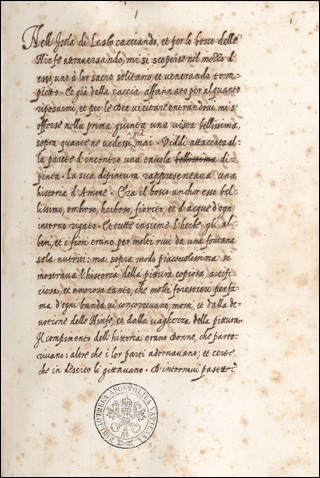 1
1
Nell'Isola di Lesbo cacciando, et per lo bosco delle
Ninfe attraversando, mi si scoperse nel mezzo d'
esso uno à lor sacro solitario, et venerando tem-
pietto. Et già della caccia affannato per alquanto
riposarmi, et per le Dee visitare entrandovi mi s'
offerse nella prima giunta una vista bellissima,
sopra quante ne vedessi mai. Viddi attaccata al-
la parete d'incontro una tavola bellissima di-
pinta. La sua dipintura rappresentava una
historia d'Amore. Era il bosco anchor esso bel-
lissimo, ombroso, herboso, fiorito, et d'acque d'ogn'
intorno rigato. Et tutte insieme l'herbe, gli al-
beri, et i fiori erano per molti rivi da una fontana
sola nutriti: ma sopra modo piacevolissima se
mostrava l'historia della pittura copiosa, artifi-
ciosa, et amorosa tanto, che molti forestieri per fa-
ma d'ogni banda vi concorrevano, mossi, et dalla de-
votione delle Ninfe, et dalla vaghezza della pittura.
Il componimento dell'historia erano Donne, che parto-
rivano: altre che i lor parti adornavano; et certe,
che in deserto li gittavano. D'intorno vi pastori
BIBLIOTHECA APOSTOLICA VATICANA